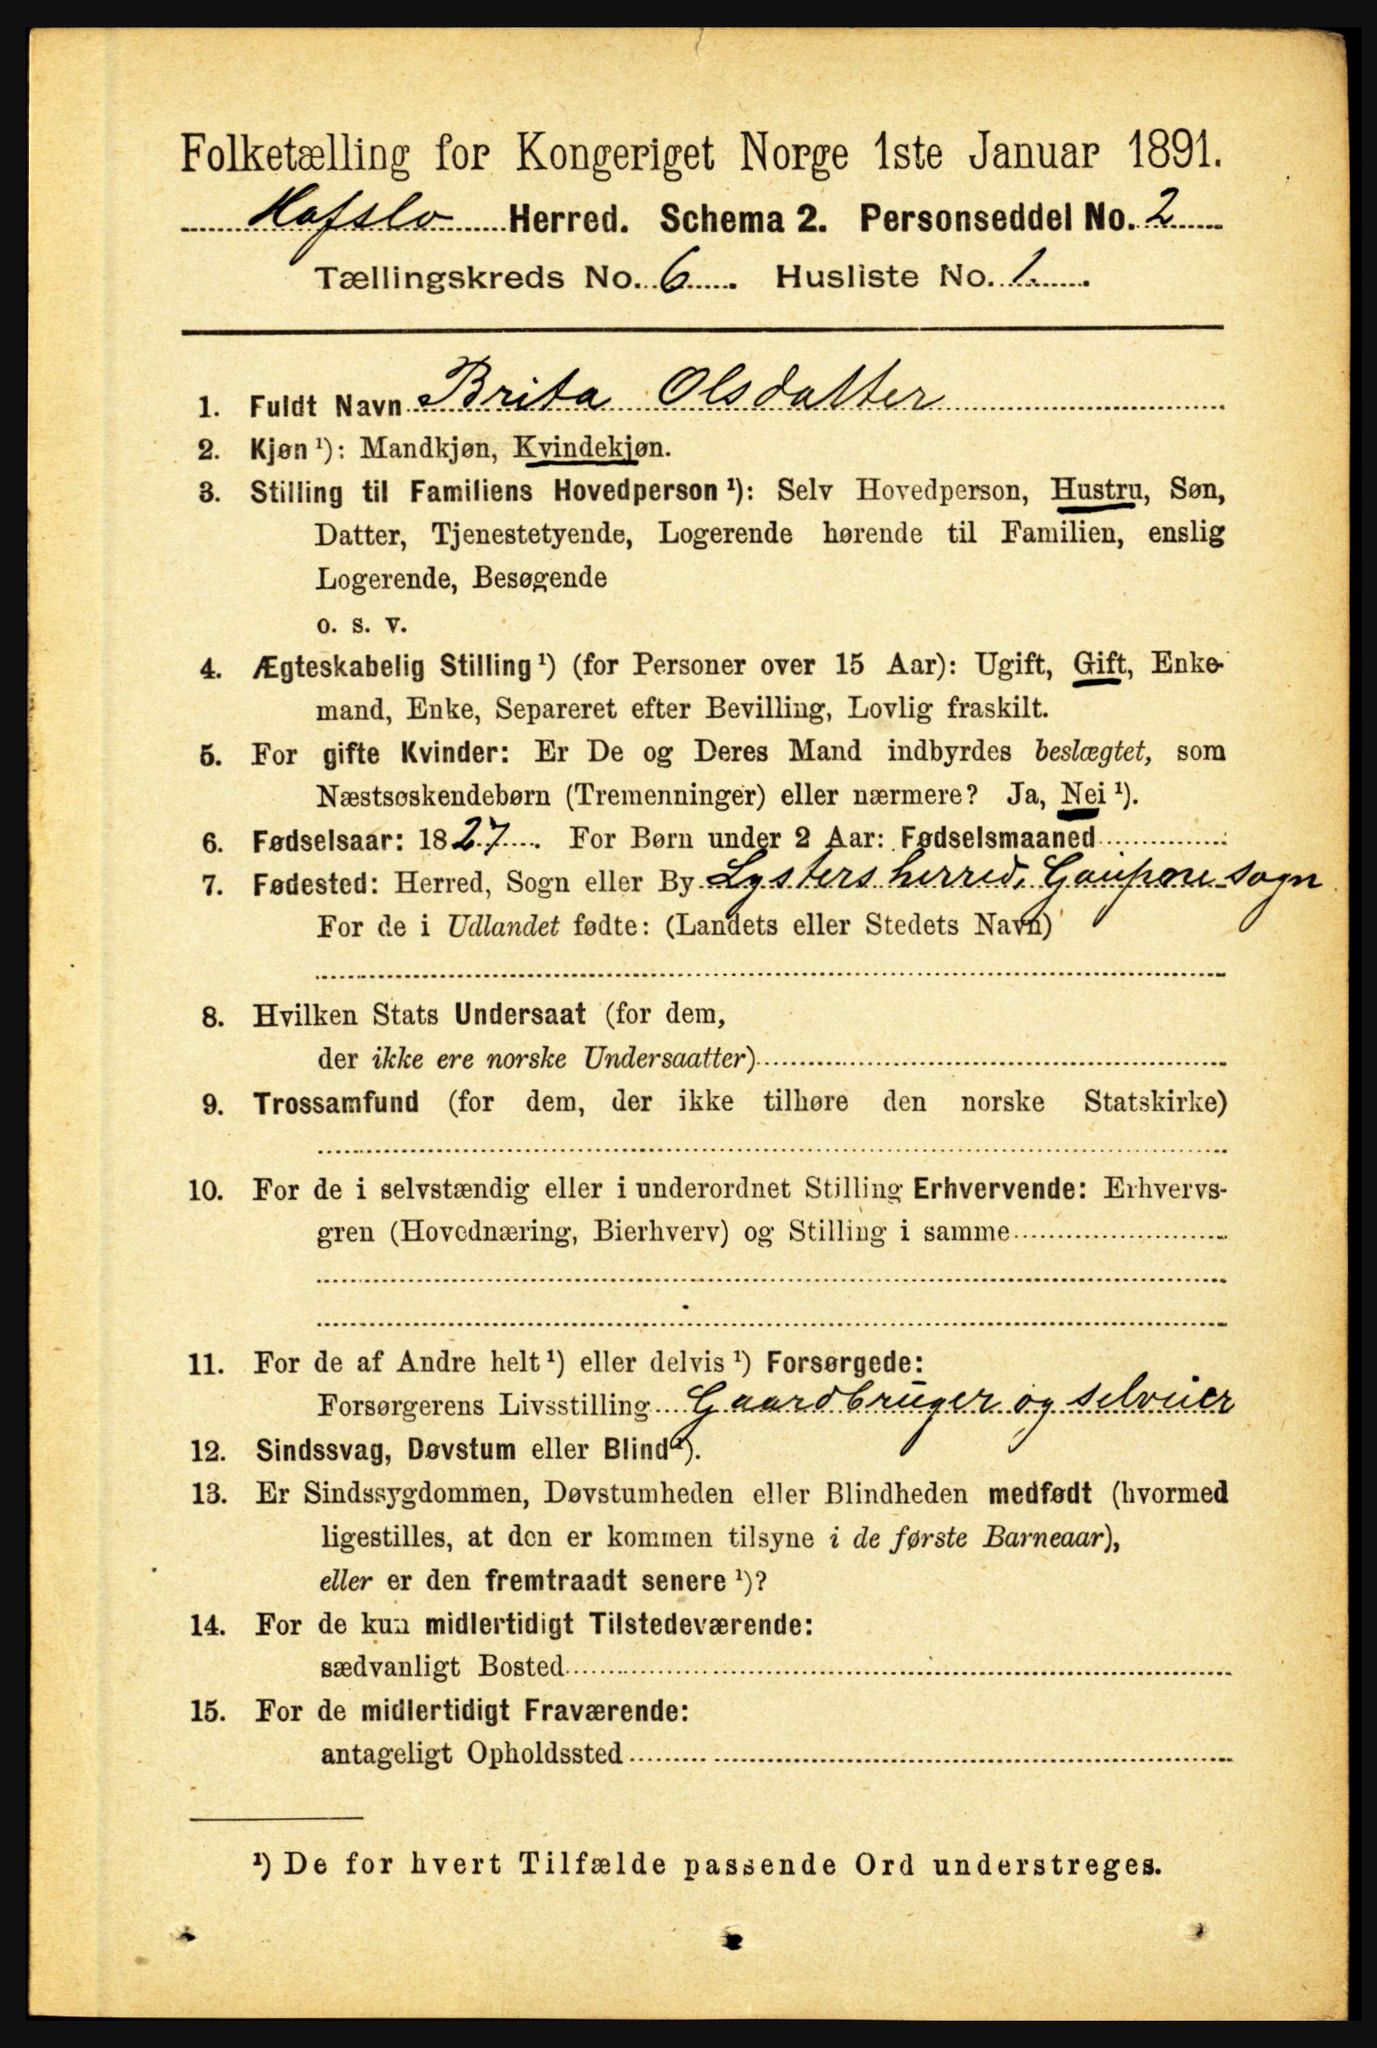 Folketælling for Kongeriget Norge 1ste Januar 1891.
Hafslo Herred. Schema 2. Personseddel No. 2
Tællingskreds No. 6. Husliste No. 1.
1. Fuldt Navn Brita Olsdatter
2. Kjøn ¹): Mandkjøn, Kvindekjøn.
3. Stilling til Familiens Hovedperson ¹): Selv Hovedperson, Hustru, Søn,
Datter, Tjenestetyende, Logerende hørende til Familien, enslig
Logerende, Besøgende
o. s. v.
4. Ægteskabelig Stilling ¹) (for Personer over 15 Aar): Ugift, Gift, Enke-
mand, Enke, Separeret efter Bevilling, Lovlig fraskilt.
5. For gifte Kvinder: Er De og Deres Mand indbyrdes beslægtet, som
Næstsøskendebørn (Tremenninger) eller nærmere? Ja, Nei ¹).
6. Fødselsaar: 1827. For Børn under 2 Aar: Fødselsmaaned
7. Fødested: Herred, Sogn eller By Lysters herred, Gaupne sogn
For de i Udlandet fødte: (Landets eller Stedets Navn)
8. Hvilken Stats Undersaat (for dem,
der ikke ere norske Undersaatter)
9. Trossamfund (for dem, der ikke tilhøre den norske Statskirke)
10. For de i selvstændig eller i underordnet Stilling Erhvervende: Erhvervs-
gren (Hovednæring, Bierhverv) og Stilling i samme
11. For de af Andre helt ¹) eller delvis ¹) Forsørgede:
Forsørgerens Livsstilling Gaardbruger og selveier
12. Sindssvag, Døvstum eller Blind ¹).
13. Er Sindssygdommen, Døvstumheden eller Blindheden medfødt (hvormed
ligestilles, at den er kommen tilsyne i de første Barneaar),
eller er den fremtraadt senere ¹)?
14. For de kun midlertidigt Tilstedeværende:
sædvanligt Bosted
15. For de midlertidigt Fraværende:
antageligt Opholdssted
¹) De for hvert Tilfælde passende Ord understreges.